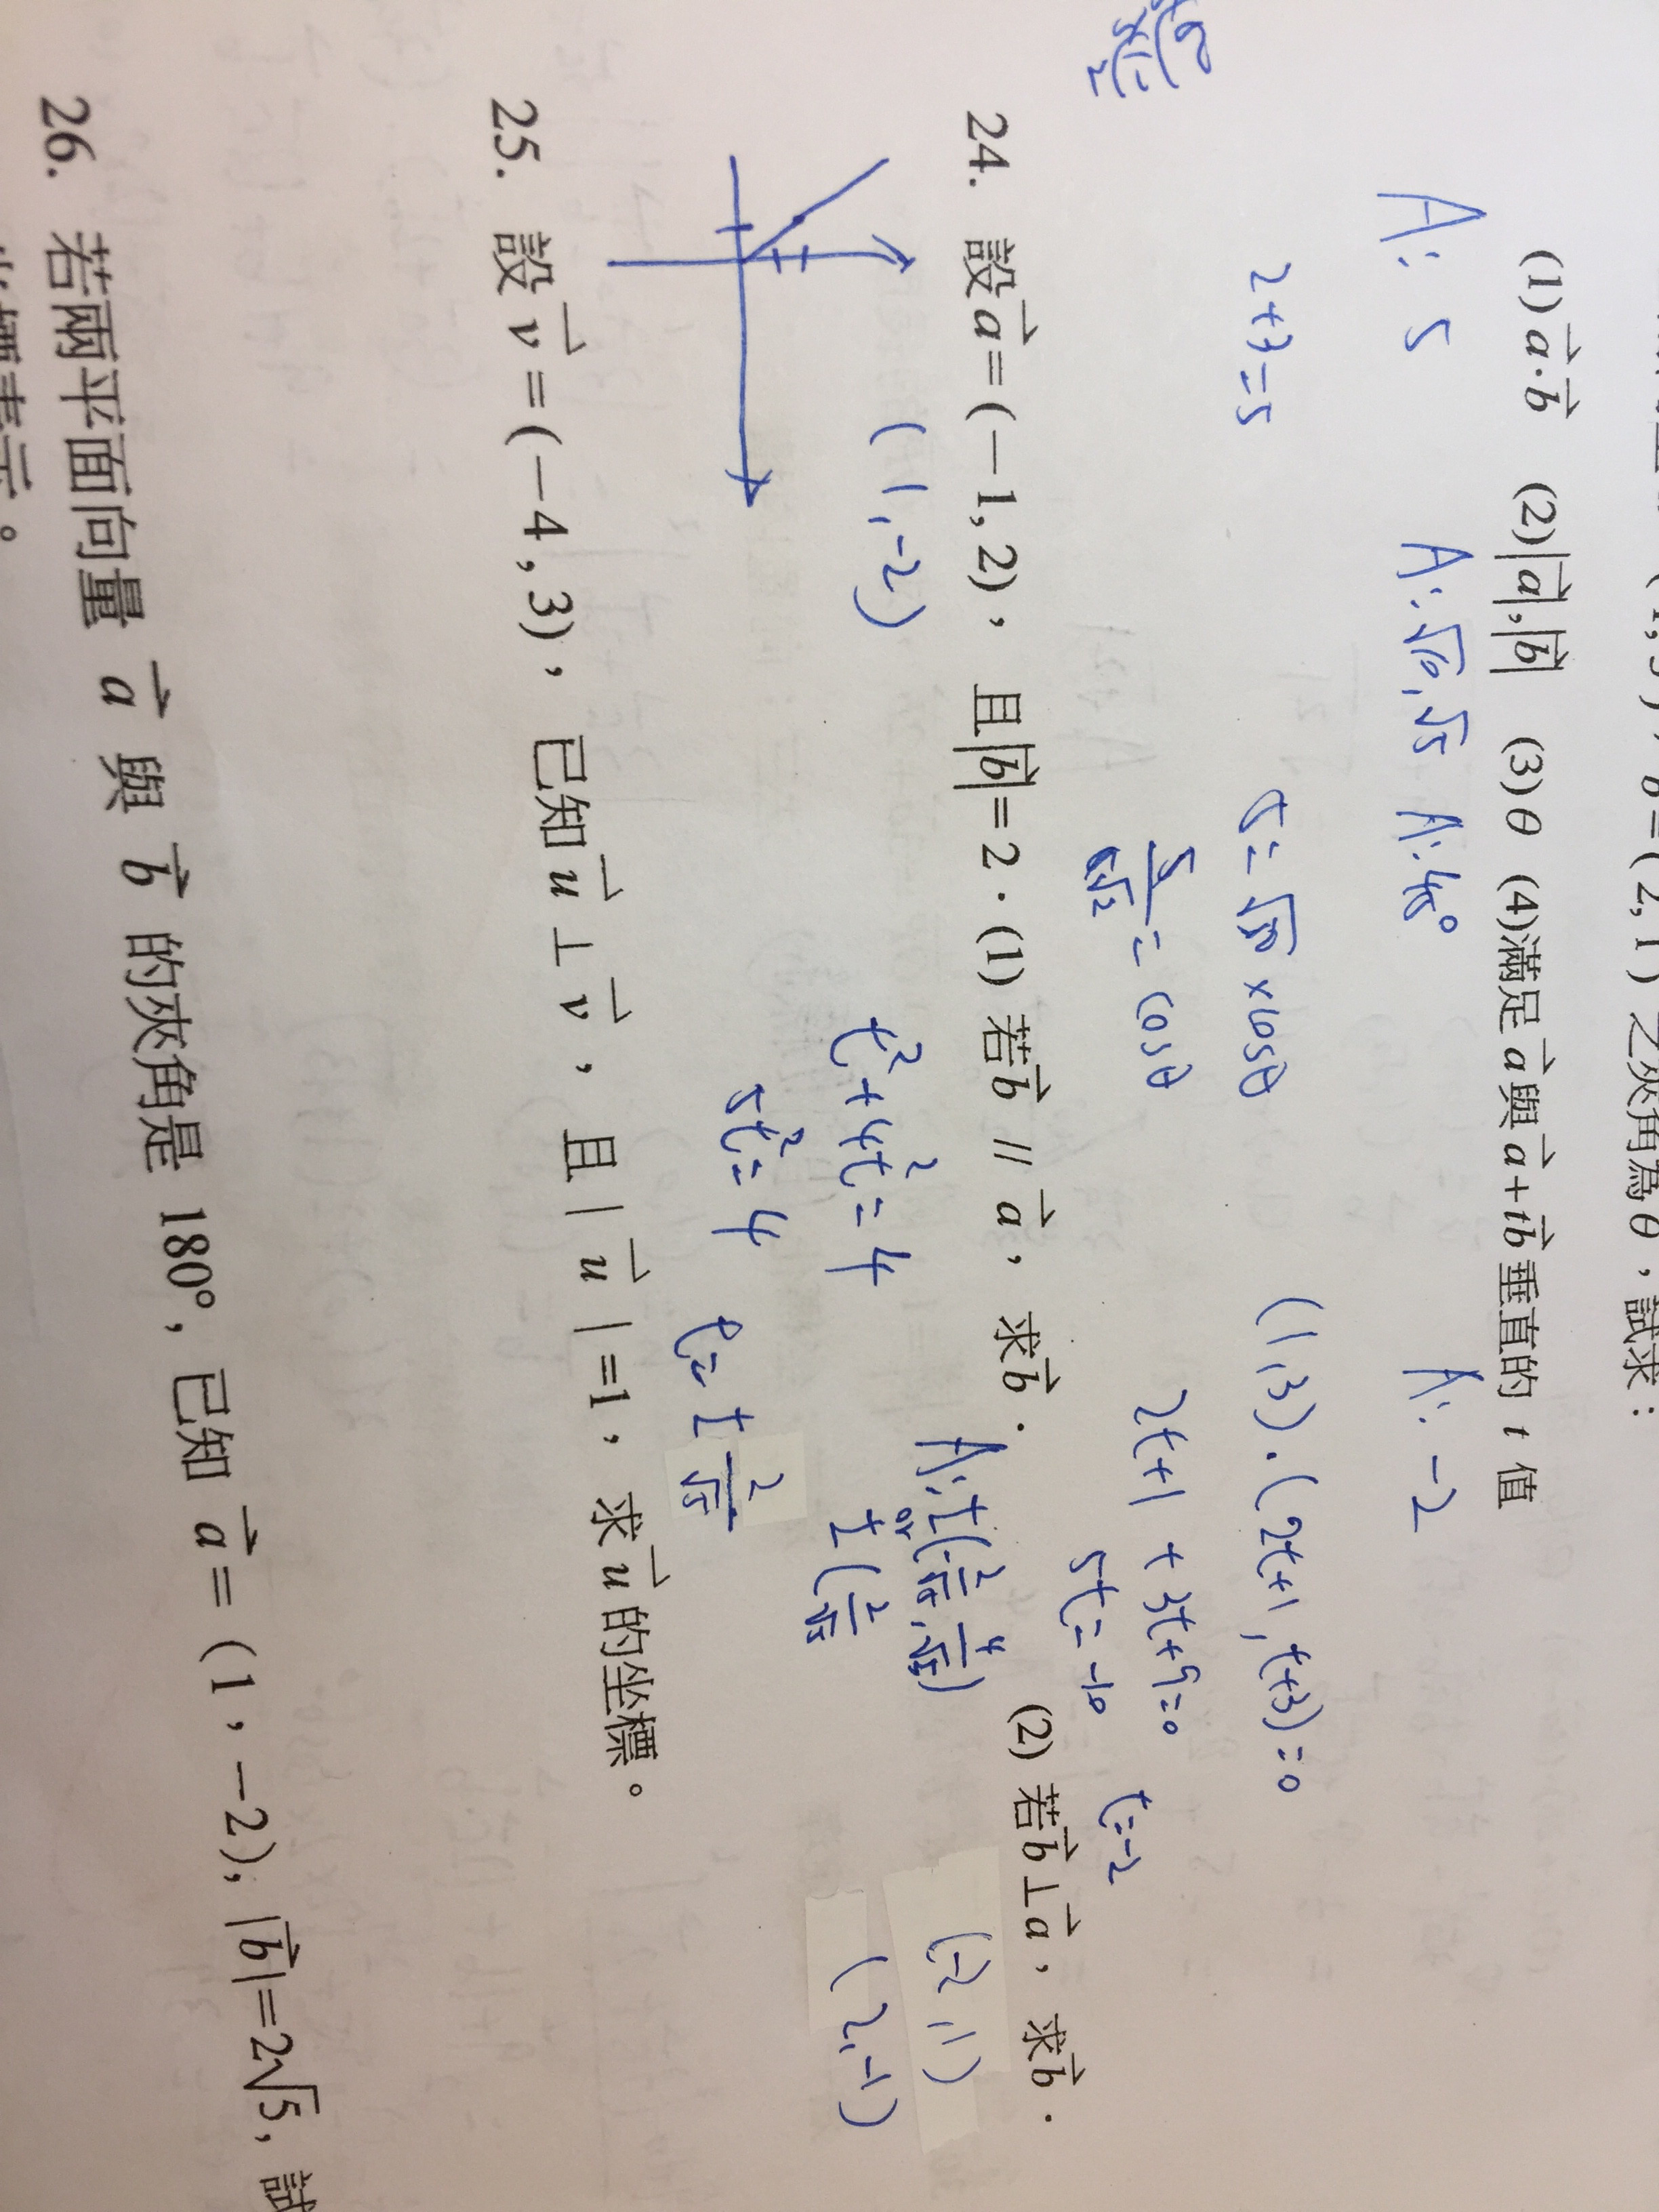 b=(2,1)之夾角為θ，試求：
(1) a·b (2)|a|,|b| (3)θ (4)滿足a與a+tb垂直的 t 值
A: 5 A: √10, √5 A: 45° A: -2
2+3=5 5=√50×cosθ (1,3)·(2t+1,t+3)=0
5/5√2=cosθ 2t+1+3t+9=0
5t=-10 t=-2
24. 設a=(-1,2)，且|b|=2．(1) 若b // a，求b． (2) 若b⊥a，求b．
(1,-2) t²+4t²=4 (-2,1)
5t²=4 (2,-1)
t=±2/√5
25. 設v=(-4,3)，已知u⊥v，且|u|=1，求u的坐標。
26. 若兩平面向量 a 與 b 的夾角是 180°，已知 a=(1,-2), |b|=2√5，試
坐標表示。